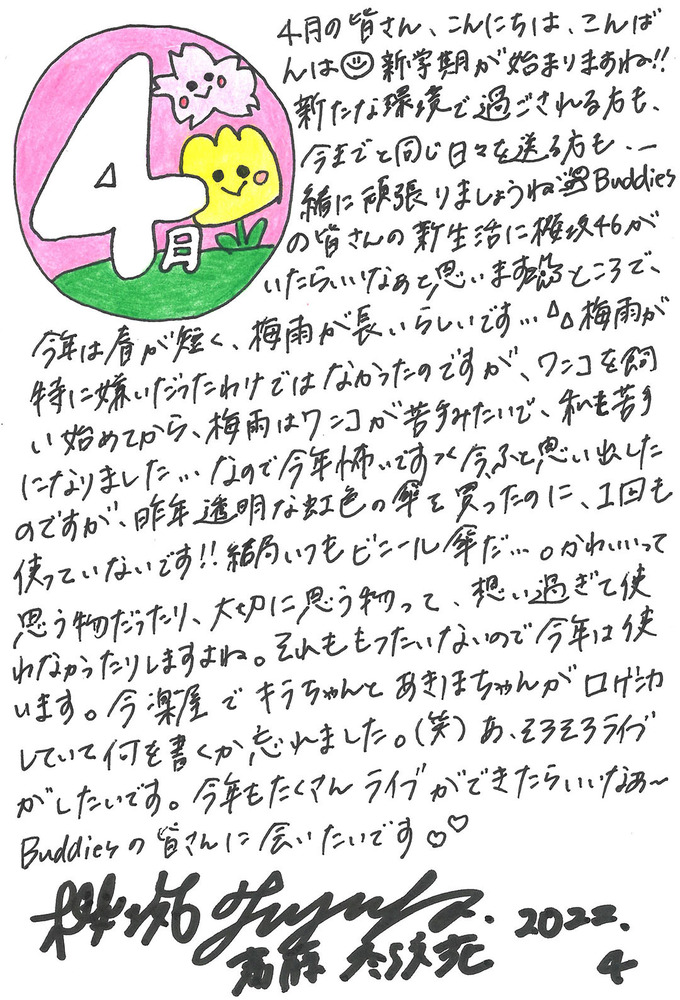 4月
4月の皆さん、こんにちは、こんば
んは☺新学期が始まりますね!!
新たな環境で過ごされる方も、
今までと同じ日々を送る方も、一
緒に頑張りましょうね Buddies
の皆さんの新生活に櫻坂46が
いたらいいなぁと思います ところで、
今年は春が短く、梅雨が長いらしいです… 梅雨が
特に嫌いだったわけではなかったのですが、ワンコを飼
い始めてから、梅雨はワンコが苦手みたいで、私も苦手
になりました… なので今年怖いです 今ふと思い出した
のですが、昨年透明な虹色の傘を買ったのに、1回も
使っていないです!!結局いつもビニール傘だ…。かわいいって
思う物だったり、大切に思う物って、想い過ぎて使
れなかったりしますよね。それももったいないので今年は使
います。今楽屋でキラちゃんとあきほちゃんが口ゲンカ
していて何を書くか忘れました。(笑)あ、そろそろライブ
がしたいです。今年もたくさんライブができたらいいなぁ〜
Buddiesの皆さんに会いたいです♡♡
櫻坂46 Fuyuka. 2022.
齋藤 冬優花 4